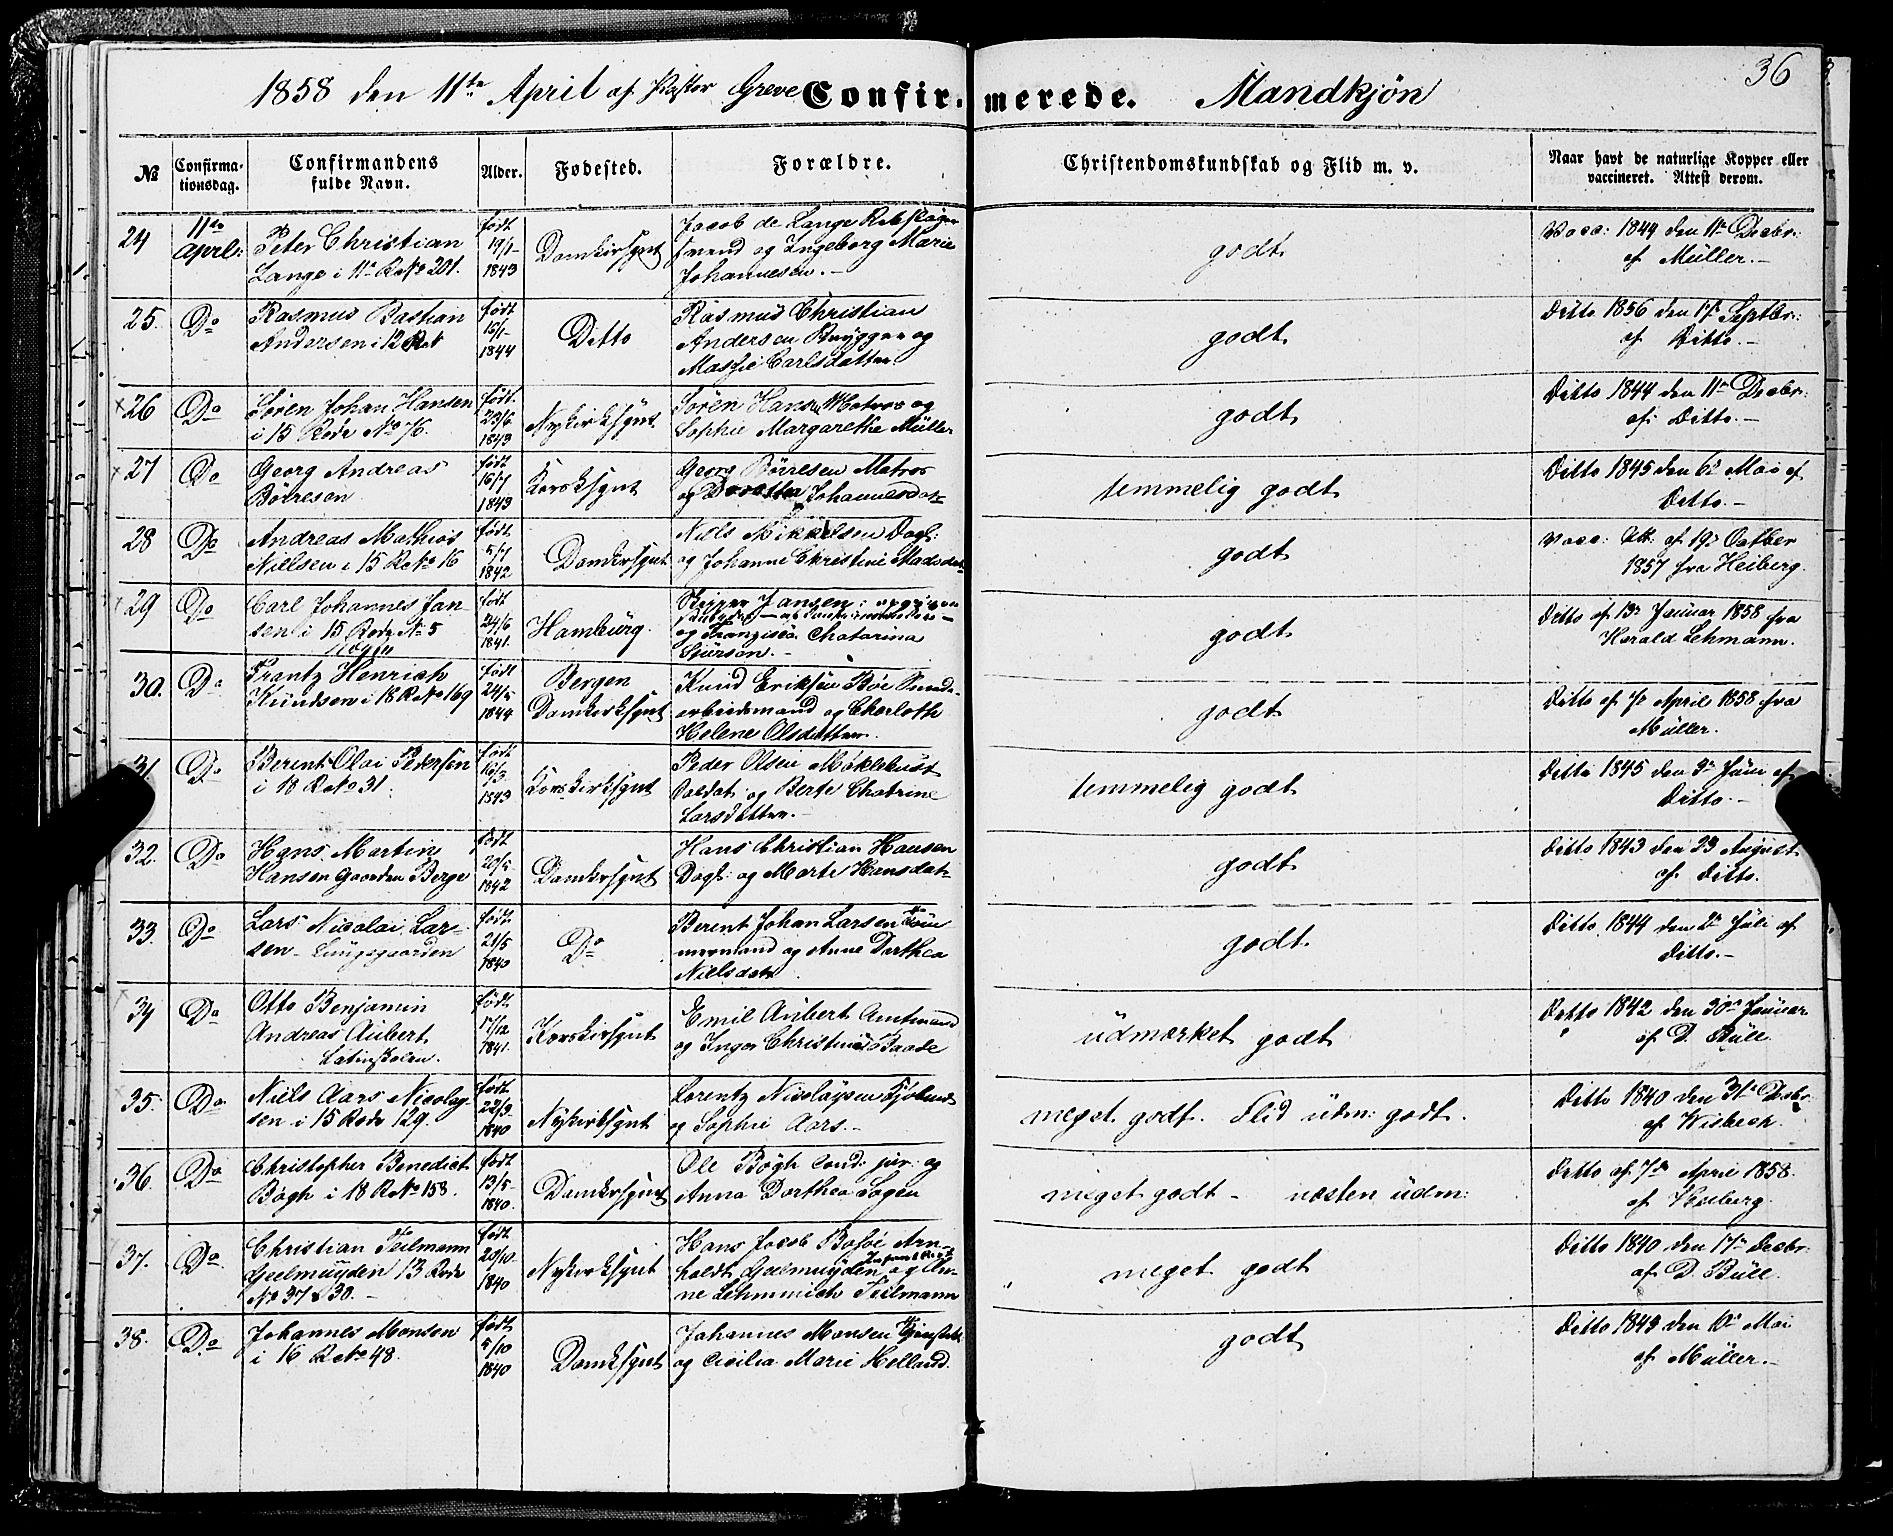 1858 den 11te April af Pastor Greve Confirmerede. Mandkjøn 36
№ Confirmationsdag. Confirmandens fulde Navn. Alder. Fødested. Forældre. Christendomskundskab og Flid m. v. Naar havt de naturlige Kopper eller vaccineret. Attest derom.
24 11te April: Peter Christian født 19/1 1843 Domkirksognt Jacob de Lange
Lange i 11te R No 201. svend og Ingeborg Marie Johannesen. godt Vacc: 1844 den 11te Decbr: af Müller.
25. Do Rasmus Bastian født 15/1 1844 Ditto Rasmus Christian
Andersen i 12 Rd Andersen Brygger og Carlsdatter. godt Ditto 1856 den 17 Septbr: af Ditto.
26 Do Søren Johan Hansen født 23/6 1843 Nykirksognt Søren Hansen Matros og
i 15 Rode No 76. Sophie Margarethe Müller godt Ditto 1844 den 11te Decbr: af Ditto.
27 Do Georg Andreas født 16/7 1843 Korsksgnt Georg Börresen Matros
Börresen og Dorothea Johannesdat temmelig godt Ditto 1845 den 6te Mai af Ditto.
28 Do Andreas Mathias født 5/7 1842 Domkirsgnt Niels Mikkelsen Dagl:
Nielsen i 15 R No 16 og Johanne Christine Madsdat godt Vacc: Att. af 19de Octber 1857 fra Heiberg.
29 Do Carl Johannes Jan- født 24/6 1841. Hamburg. Skipper Jansen:
sen i 15 Rode No 5 og Franzisca Chatarina Sjursen. godt Ditto af 13de Januar 1858 fra Harald Lehmann.
30. Do Frantz Henrich født 24/5 1844 Bergen Domkirksgnt Knud Eriksen Böe
Knudsen i 18 R No 169 arbeidsmand og Charloth Helene Olsdatter. godt Ditto af 7de April 1858 fra Müller.
31 Do Berent Olai Pedersen født 16/3 1843 Korskirksgnt Peder Olsen Möklebust
i 18 R No 31. Soldat og Berte Chatrine Larsdatter. temmelig godt Ditto 1845 den 3de Juni af Ditto.
32. Do Hans Martin født 20/5 1842 Domkirsgnt Hans Christian Hansen
Hansen Gaarden Berge Dagl: og Marte Hansdat godt Ditto 1843 den 23 August af Ditto.
33. Do Lars Nicolai Lar- født 21/5 1840 Do Berent Johan Larsen Töm-
sen. Lungsgaarden mermand og Anne Dorthea Nielsdatr godt Ditto 1844 den 2de Juli af Ditto.
34 Do Otto Benjamin født 17/12 1841. Korskirsgnt Emil Aubert Amtmand
Andreas Aubert og Inger Christine Baade
Latinskolen. udmærket godt Ditto 1842 den 30te Januar af D. Bull.
35. Do Niels Aars Nicolay- født 22/3 1840 Nykirksgnt Lorentz Nicolaysen Kjøbmd
sen i 15 Rode 129. og Sophie Aars. meget godt. Flid udm: godt. Ditto 1840 den 31te Decbr. af Wisbech.
36. Do Christopher Benedict født 13/5 1840. Domkirsgnt Ole Bøgh Cand: jur: og
Bøgh i 18 R No 158. Anna Dorthea Sagen meget godt - næsten udm: Ditto af 7de April 1858. af Heiberg.
37. Do Christian Teilmann født 20/10 1840 Nykirksgnt Hans Jacob Arn-
Geelmuyden 13 Rode holdt Geelmuyden og An-
No 37 & 30. ne Lehmmich Teilmann meget godt Ditto 1840 den 17de Decbr: af D. Bull.
38. Do Johannes Monsen født 5/10 1840 Domksgnt Johannes Monsen
i 16 R No 48. og Cicilia Marie Helland. godt Ditto 1843 den 10de Mai af Müller.